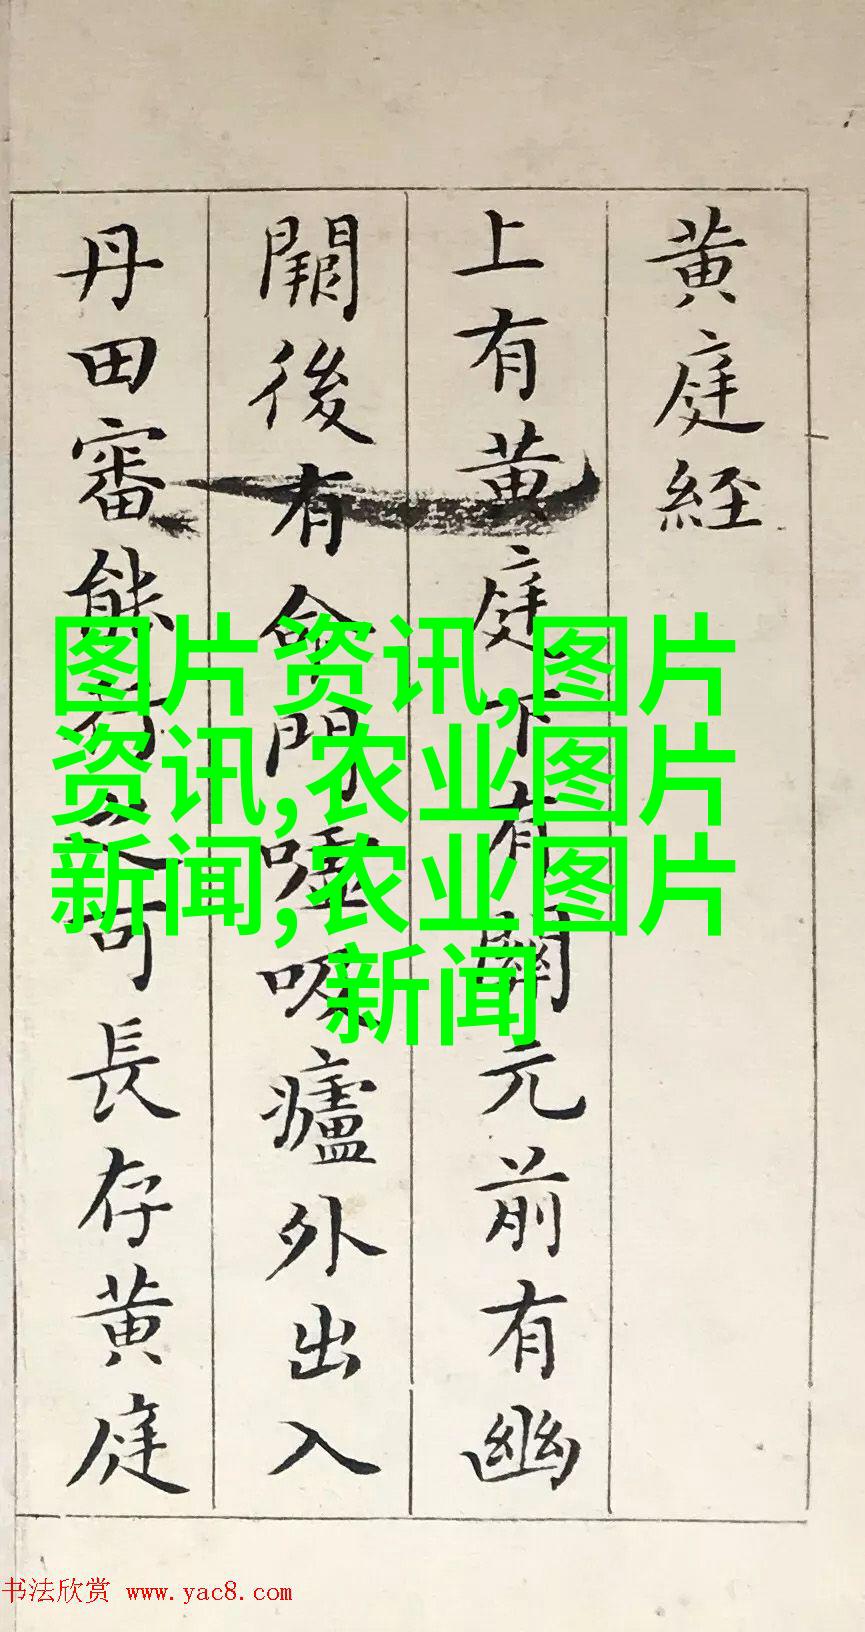 黄庭経
上有黄庭下有關元前有幽
闕後有命門嘘吸廬外出入
丹田審能行之可長存黄庭
图片资讯,图片
资讯,农业图片
新闻,农业图片
新闻
书法欣赏 www.yac8.com